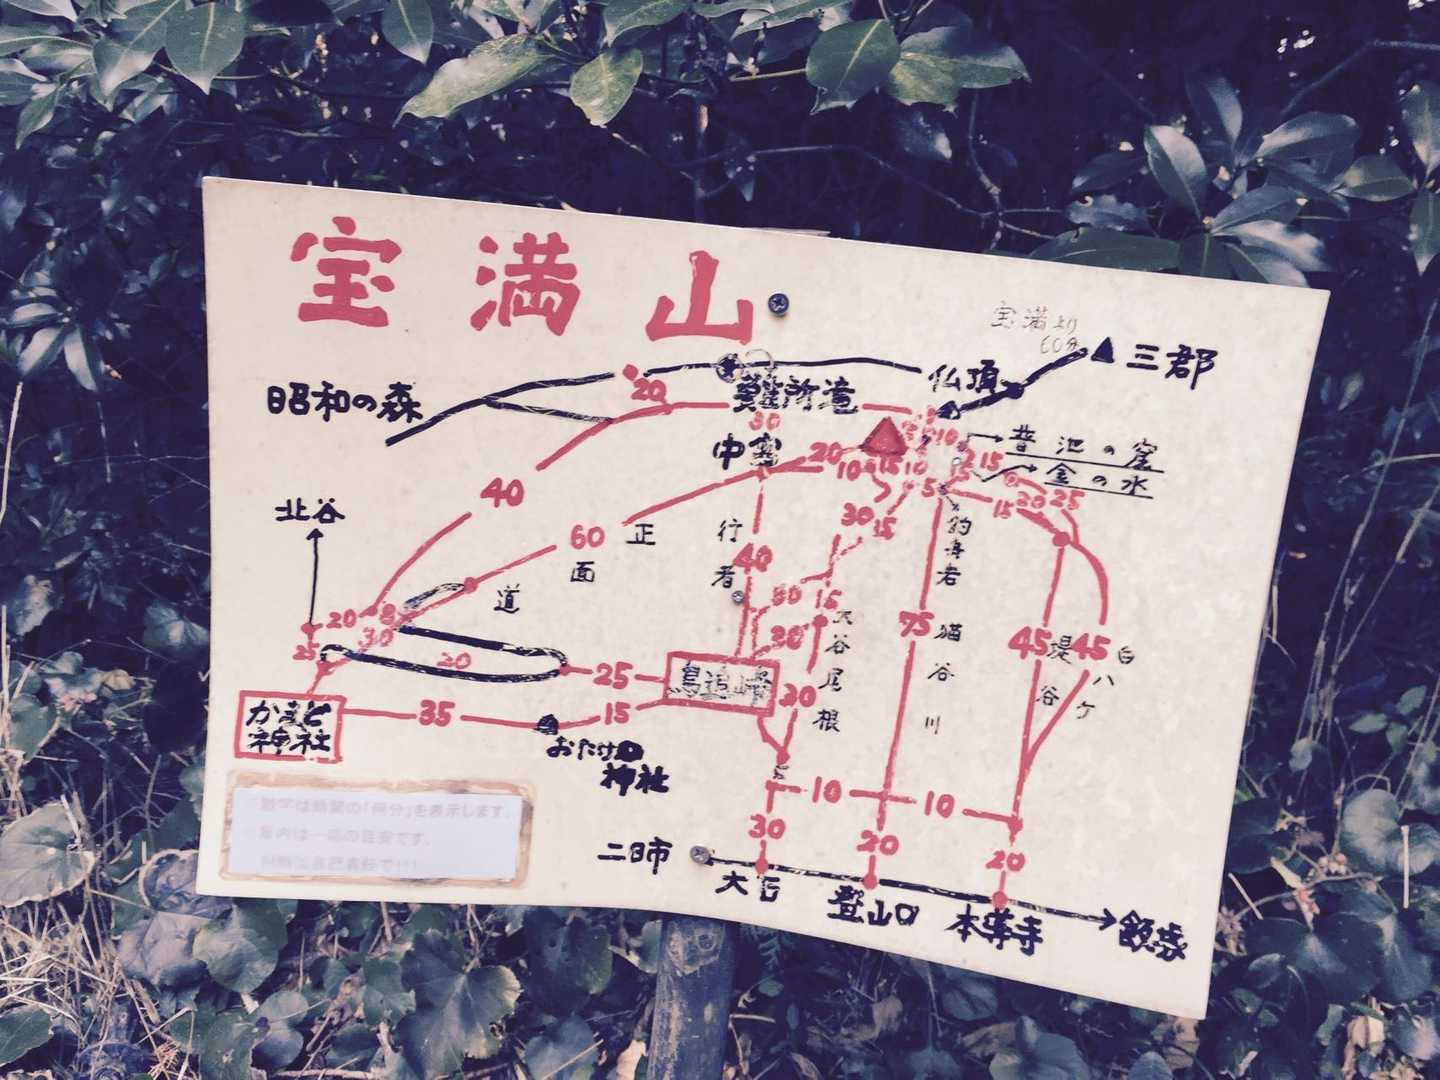 宝満山
宝満より
60分
三郡
仏頂
昭和の森
20
難所滝
30
中宮
20
10
15
10
10
5
15
普池の窟
金の水
25
20
15
40
北谷
60
正面道
行者
40
30
15
釣舟岩
20
8
30
25
20
25
80
15
30
大谷尾根
75
猫谷川
45
堤谷
45
白ハケ
鳥追峠
20
かまど
神社
35
15
おたけ
神社
10
10
30
20
20
二日市
大石
登山口
本導寺
数字は時間の「何分」を表示します。
案内は一応の目安です。